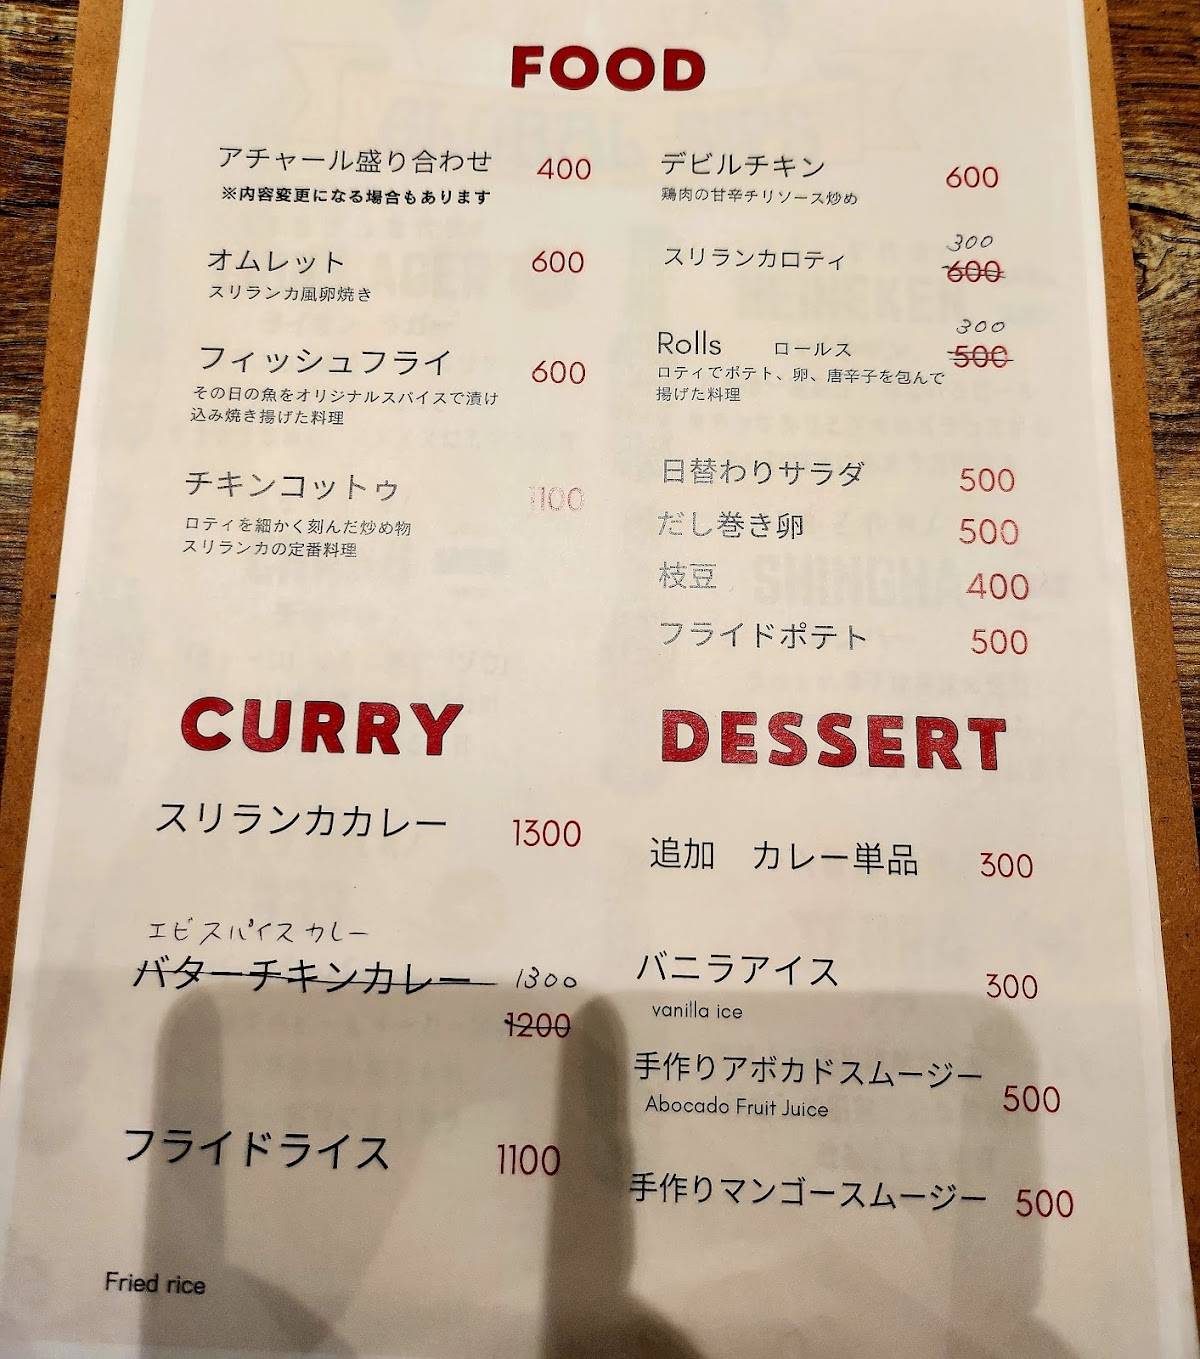 FOOD
アチャール盛り合わせ 400
※内容変更になる場合もあります
オムレット 600
スリランカ風卵焼き
フィッシュフライ 600
その日の魚をオリジナルスパイスで漬け
込み焼き揚げた料理
チキンコットゥ 1100
ロティを細かく刻んだ炒め物
スリランカの定番料理
デビルチキン 600
鶏肉の甘辛チリソース炒め
300
スリランカロティ 600
300
Rolls ロールス 500
ロティでポテト、卵、唐辛子を包んで
揚げた料理
日替わりサラダ 500
だし巻き卵 500
枝豆 400
フライドポテト 500
CURRY
スリランカカレー 1300
エビスパイスカレー
バターチキンカレー 1300
1200
フライドライス 1100
Fried rice
DESSERT
追加 カレー単品 300
バニラアイス 300
vanilla ice
手作りアボカドスムージー 500
Abocado Fruit Juice
手作りマンゴースムージー 500